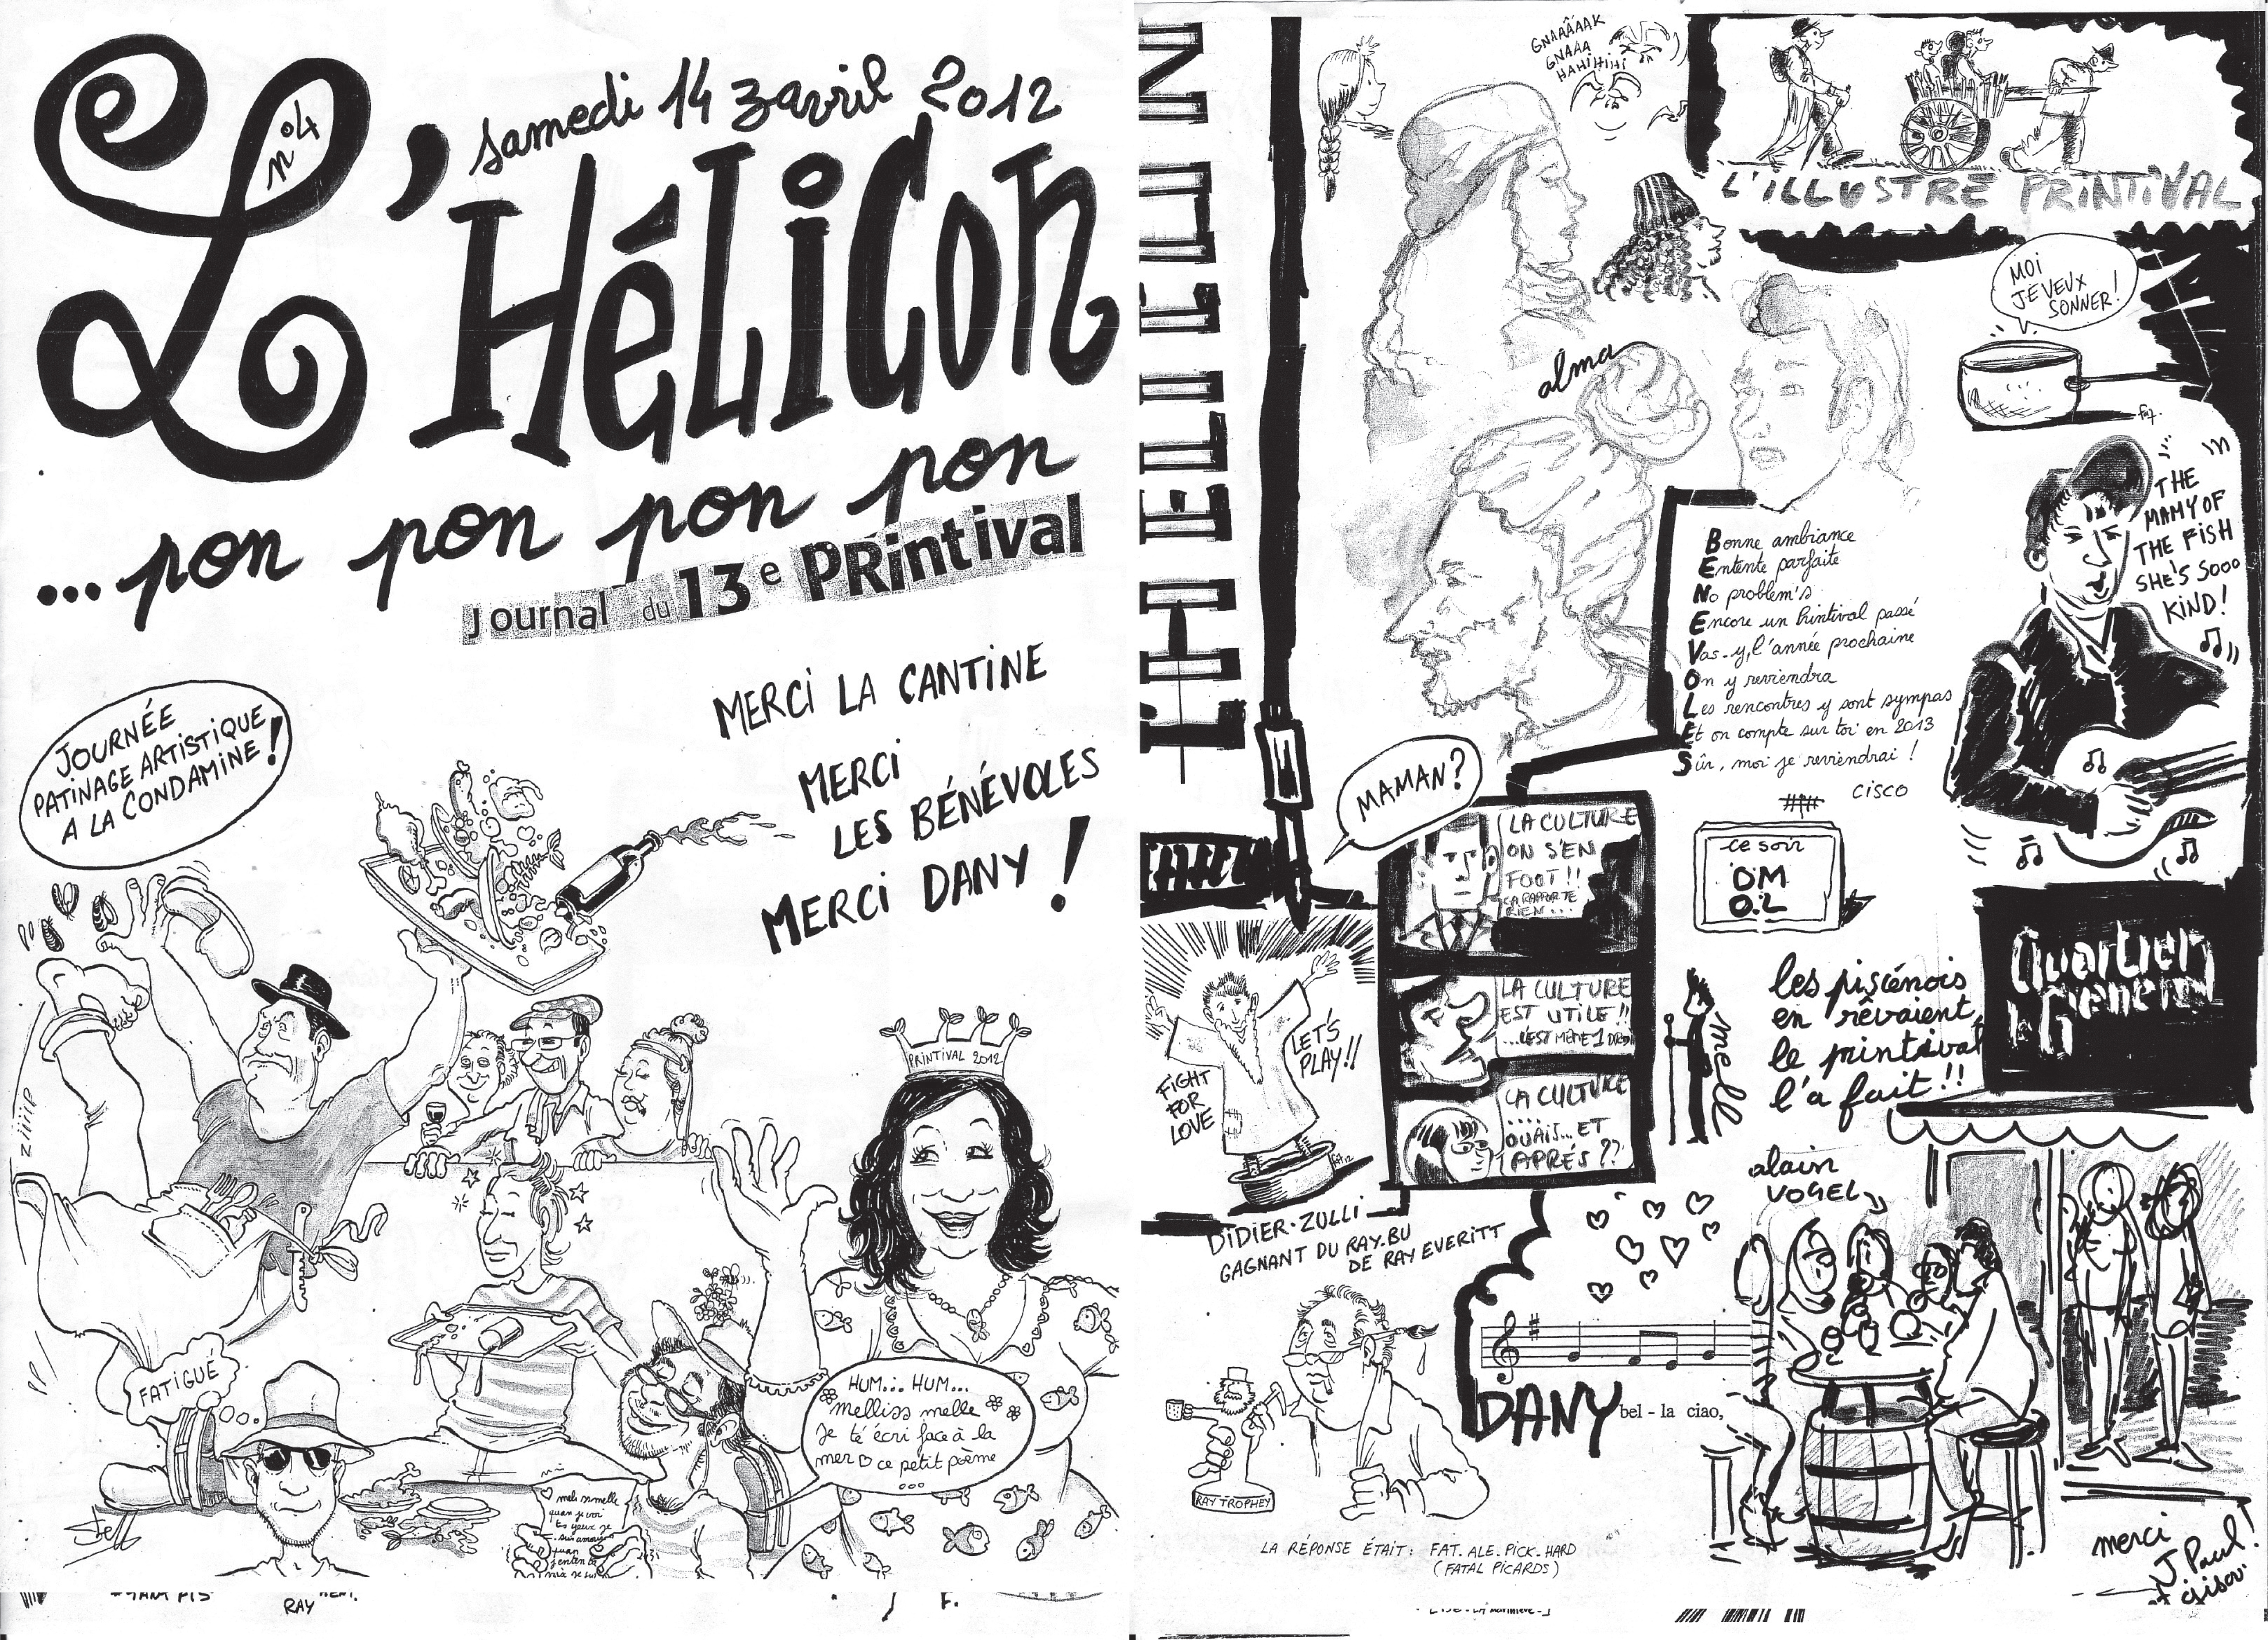 n°4
samedi 14 zavril 2012
L'HéLiCon
...pon pon pon pon
Journal du 13e PRintival
MERCi LA CANTiNE
MERCi
LES BÉNÉVOLES
MERCi DANY !
JOURNÉE
PATiNAGE ARTiSTiQUE
A LA CONDAMiNE !
ziiiip
PRiNTiVAL 2012
FATiGUE
HUM... HUM...
melliss melle
je té écri face à la
mer ce petit poème
...
mels smelle
quan je voi
tes yeux je
sui amou
quan
j'enten te
RAY
L'HELICON
GNAAÂÂAK
GNAAA
GNAAA
HAHiHiHi
L'iLLUSTRE PRiNTiVAL
MOi
JE VEUX
SONNER !
alma
THE
MAMY OF
THE FiSH
SHE'S SOOO
KiND !
Bonne ambiance
Entente parfaite
No problem's
Encore un Printival passé
Vas-y, l'année prochaine
On y reviendra
Les rencontres y sont sympas
Et on compte sur toi en 2013
Sûr, moi je reviendrai !
CISCO
MAMAN ?
LA CULTURE
ON S'EN
FOOT !!
ÇA RAPPORTE
RIEN...
LA CULTURE
EST UTILE !!
...C'EST MÊME 1 DROIT
LA CULTURE
....
OUAIS... ET
APRÉS ??
ce soir
OM
O.L
Quartier
Général
les piscénois
en rêvaient
le printival
l'a fait !!
melle
FiGHT
FOR
LOVE
LET'S
PLAY !!
DiDiER-ZULLi
GAGNANT DU RAY.BU
DE RAY EVERiTT
alain
VOGEL
DANY
bel - la ciao,
RAY TROPHEY
LA RÉPONSE ÉTAIT : FAT.ALE.PICK.HARD
(FATAL PICARDS)
merci
J. Paul !